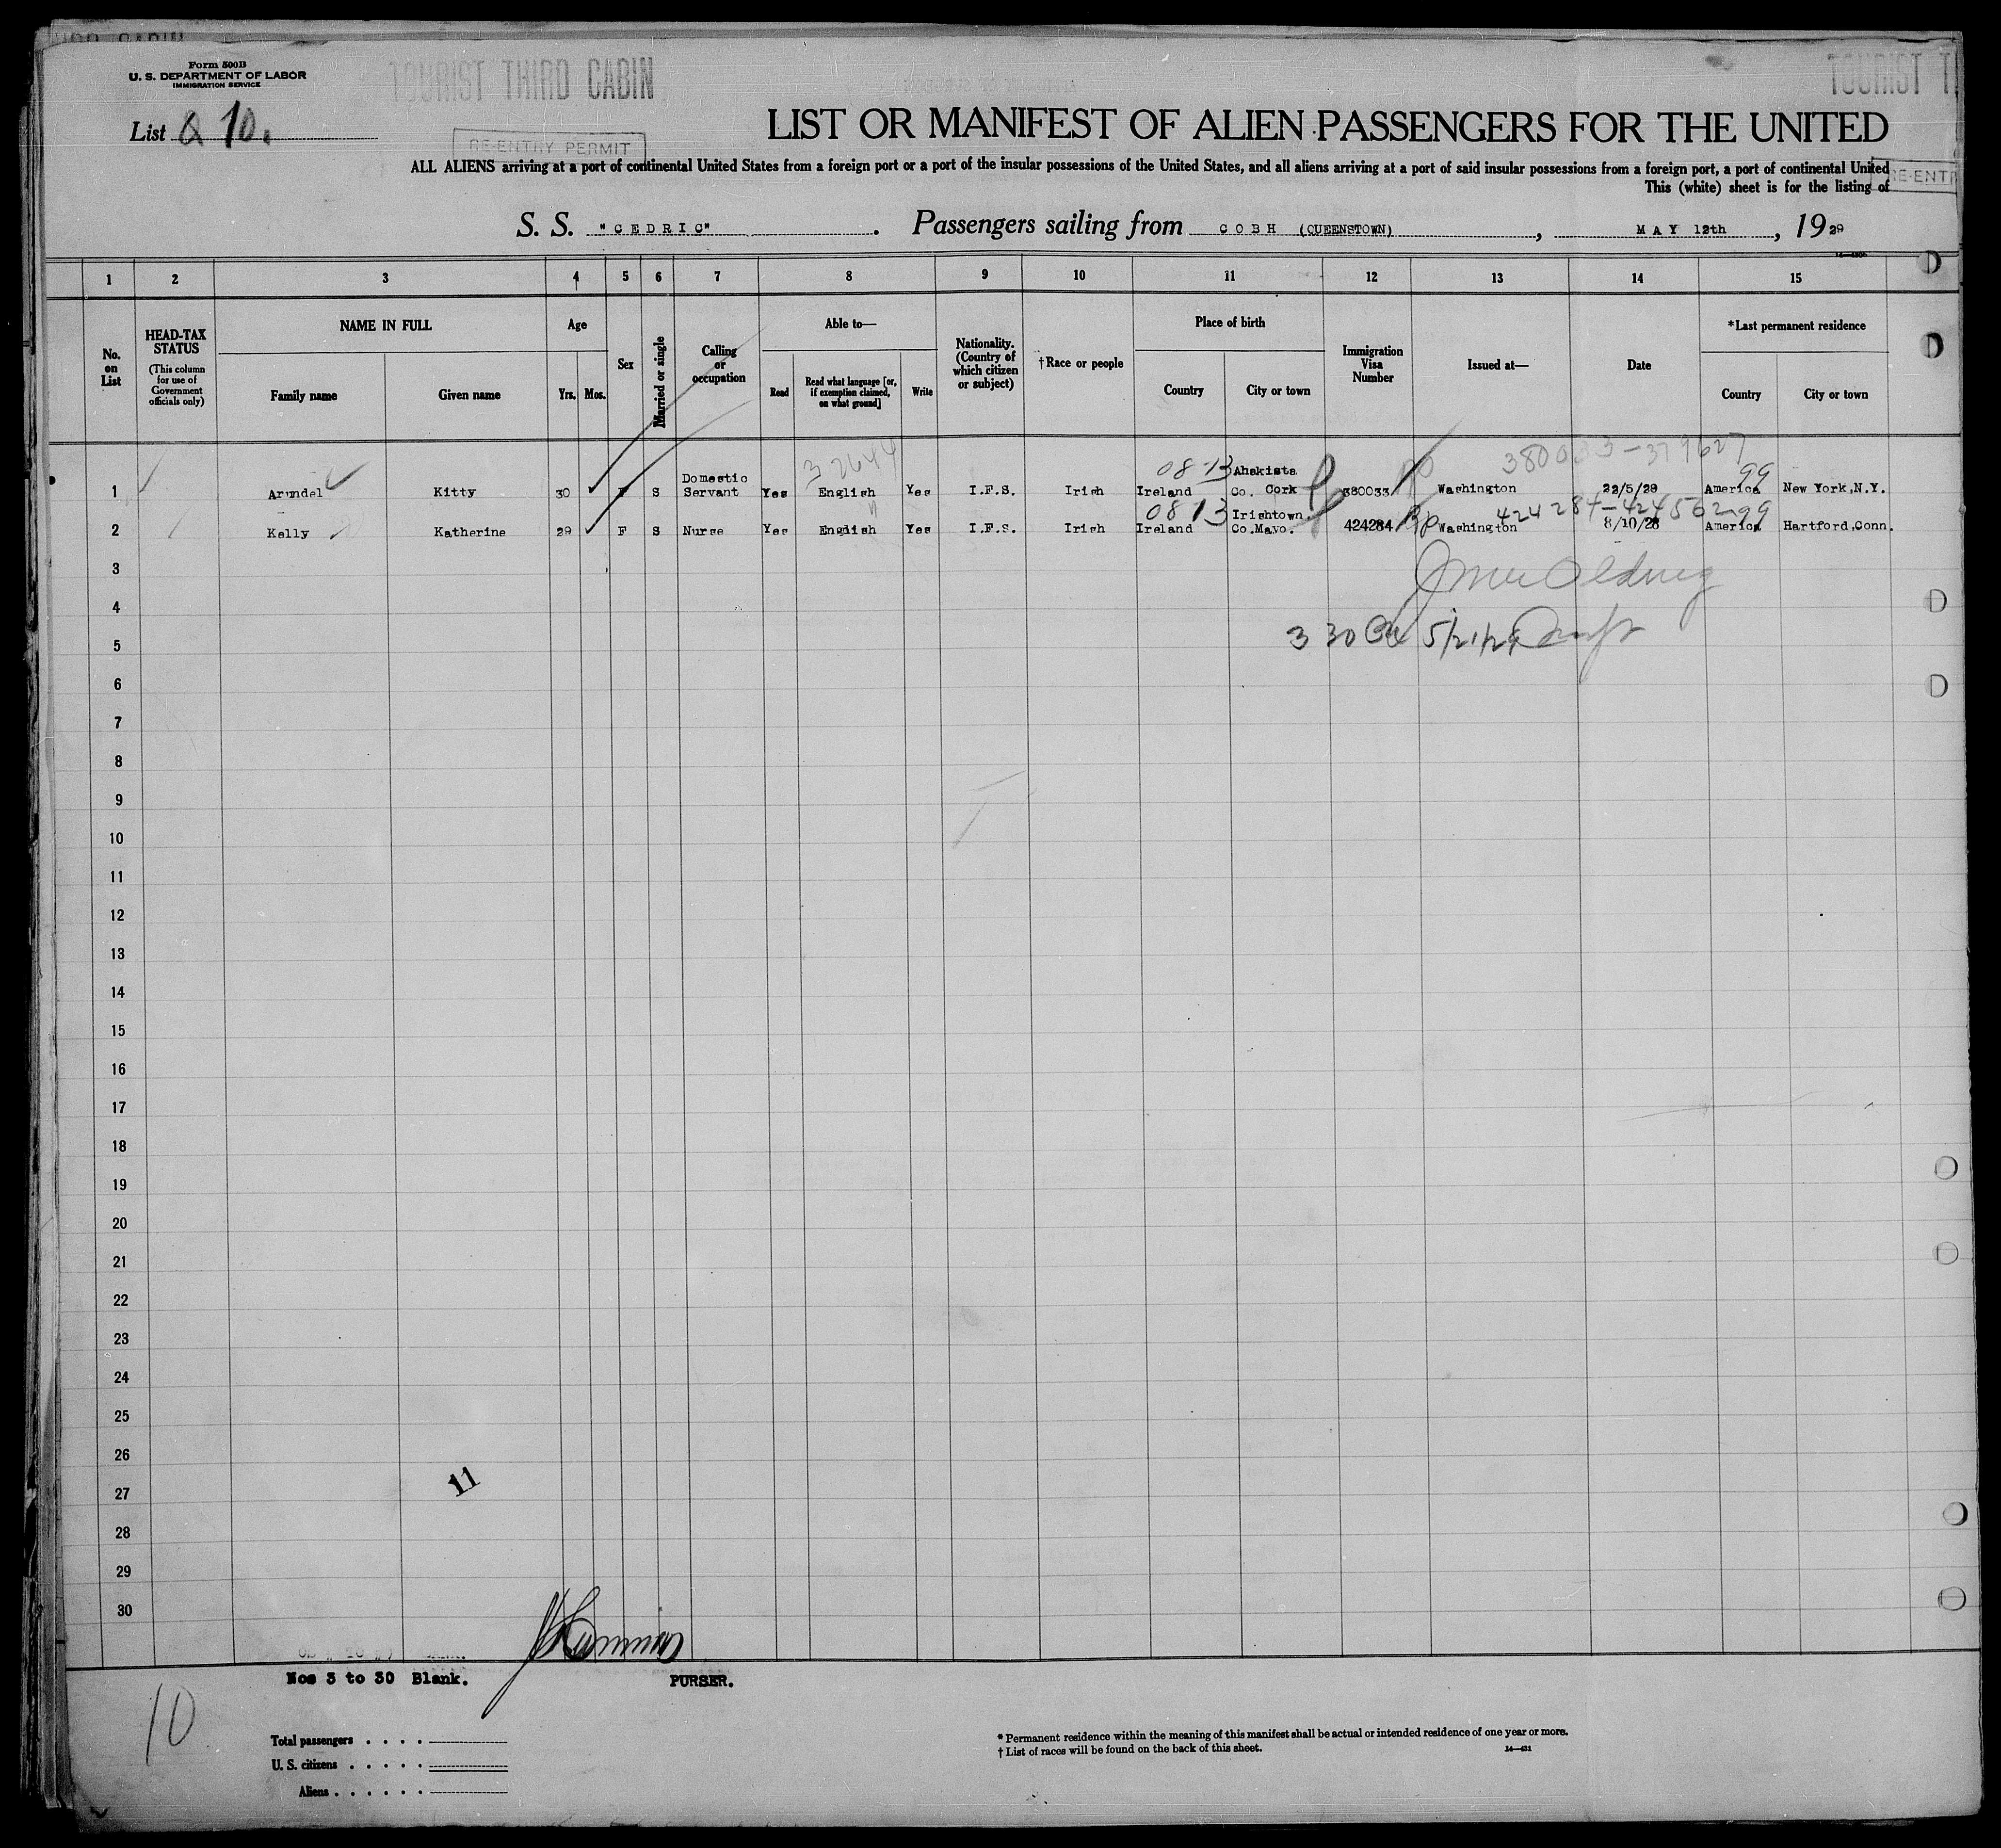 Form 500B
U. S. DEPARTMENT OF LABOR
IMMIGRATION SERVICE
TOURIST THIRD CABIN
TOURIST T
List 10.
RE-ENTRY PERMIT
LIST OR MANIFEST OF ALIEN PASSENGERS FOR THE UNITED
ALL ALIENS arriving at a port of continental United States from a foreign port or a port of the insular possessions of the United States, and all aliens arriving at a port of said insular possessions from a foreign port, a port of continental United
This (white) sheet is for the listing of
RE-ENTR
S. S. "CEDRIC". Passengers sailing from COBH (QUEENSTOWN), MAY 12th, 1929
1 2 3 4 5 6 7 8 9 10 11 12 13 14 15
No. on List
HEAD-TAX STATUS
(This column for use of Government officials only)
NAME IN FULL
Family name Given name
Age
Yrs. Mos.
Sex
Married or single
Calling or occupation
Able to—
Read
Read what language [or, if exemption claimed, on what ground]
Write
Nationality. (Country of which citizen or subject)
†Race or people
Place of birth
Country City or town
Immigration Visa Number
Issued at—
Date
*Last permanent residence
Country City or town
3 2644 380033-379627
08 13 99
1 Arundel Kitty 30 F S Domestic Servant Yes English Yes I.F.S. Irish Ireland Ahakista Co. Cork 380033 Washington 22/5/29 America New York,N.Y.
08 13 424284-424562 99
2 Kelly Katherine 29 F S Nurse Yes English Yes I.F.S. Irish Ireland Irishtown Co.Mayo. 424284 Washington 8/10/28 America Hartford,Conn.
3
4
5
3 30 5/21/29
6
7
8
9
10
11
12
13
14
15
16
17
18
19
20
21
22
23
24
25
26
27
11
28
29
30
Nos 3 to 30 Blank.
PURSER.
10
Total passengers
U. S. citizens
Aliens
* Permanent residence within the meaning of this manifest shall be actual or intended residence of one year or more.
† List of races will be found on the back of this sheet.
14—431